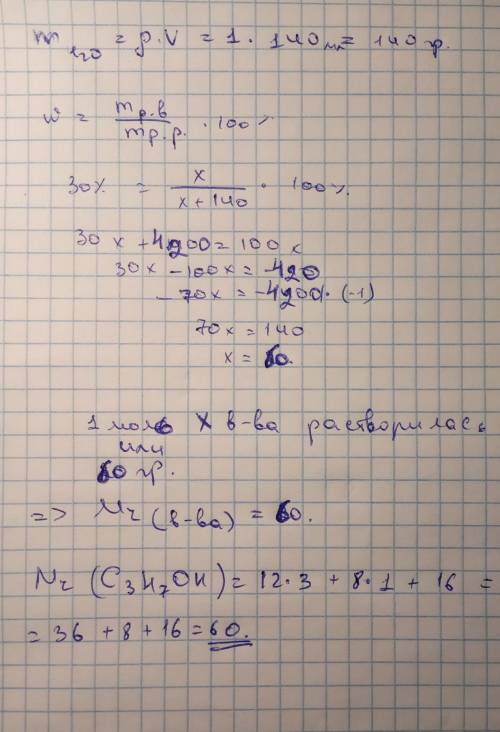 m H2O = ρ·V = 1 · 140 мл = 140 гр.
w = mр.в / mр.р. · 100%
30% = x / x + 140 · 100%.
30x + 4200 = 100x
30x - 100x = -420
-70x = -4200 | · (-1)
70x = 140
x = 60.
1 моль X в-ва растворилась
или
60 гр.
=> Mr (в-ва) = 60.
Mr (C3H7OH) = 12·3 + 8·1 + 16 =
= 36 + 8 + 16 = 60.